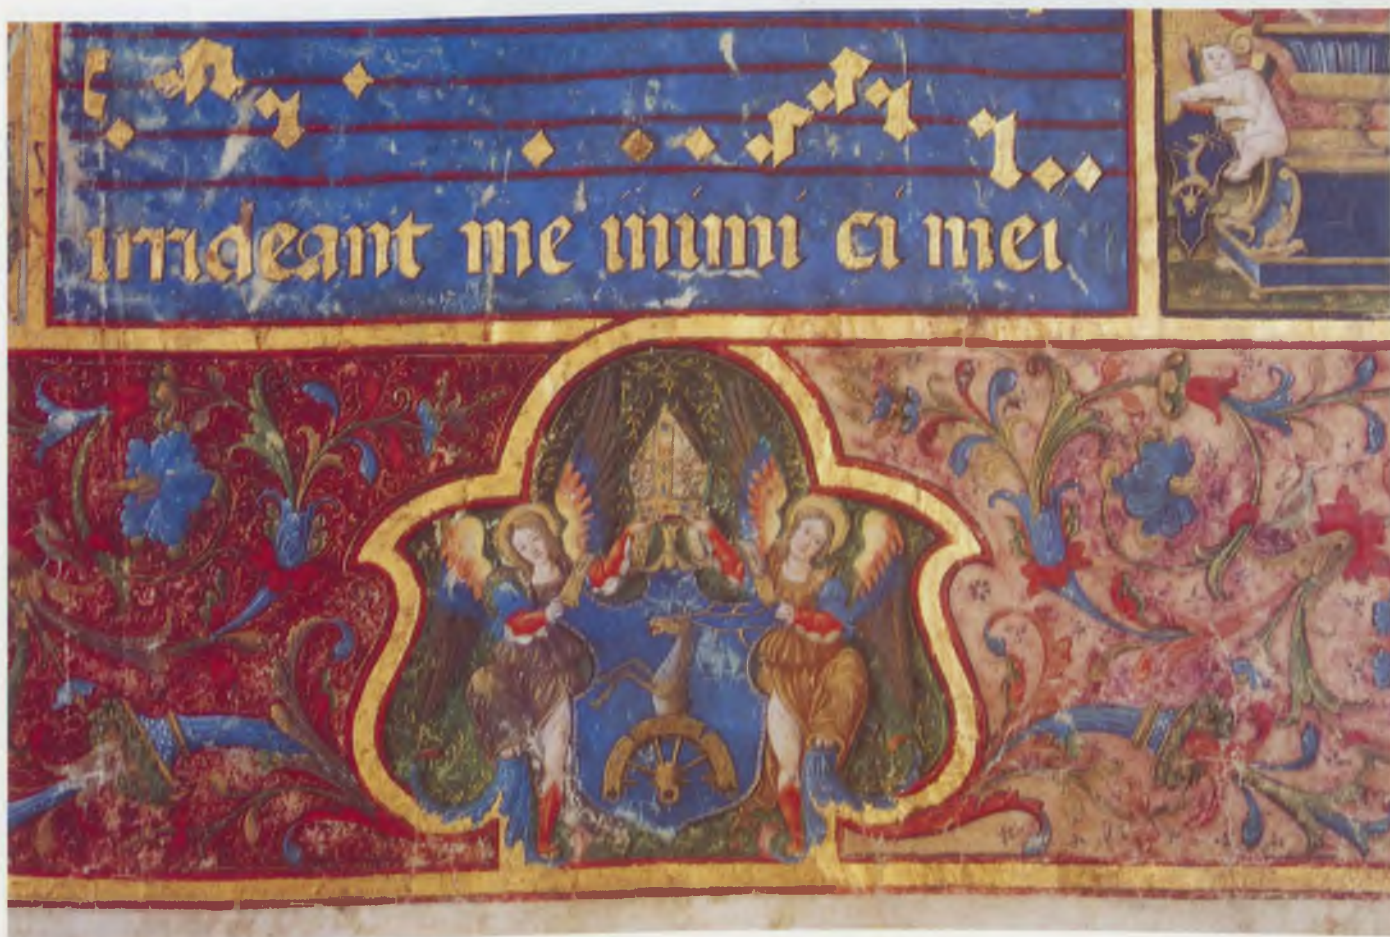 irrideant me inimi ci mei